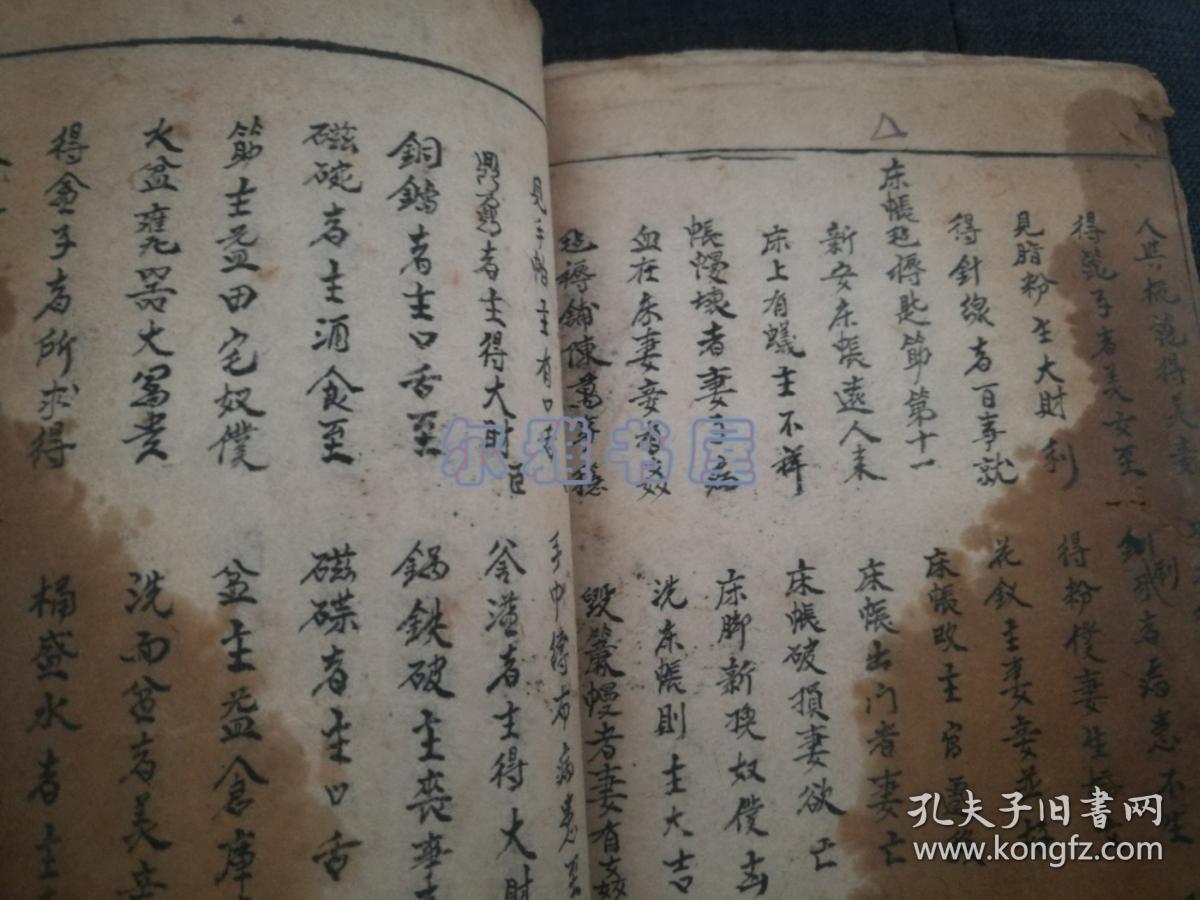 得篦子者美女至
見脂粉主大財利
得粉僕妻生
得針線者百事就
花釵主妻妾並
床帳毡褥匙筯第十一
床帳改主官
新安床帳遠人来
床帳出门者妻亡
床上有蟻主不祥
床帳破損妻欲亡
帳幔壞者妻
床脚新换奴僕
血在床妻妾有姦
洗床帳則主大吉
毡褥鋪陳萬
毀簾幔者妻有姦
見手帕主有口舌
手中得布病患至
鼎鬲者主得大財
釜溢者主得大財
銅鐺者主口舌至
鍋鉄破主喪
磁碗者主酒食至
磁碟者主口舌
筯主益田宅奴僕
盆主益倉庫
火盆甕器大富貴
洗面盆者美
得盒子者所求得
桶盛水者主
尔雅书屋
孔夫子旧书网
www.kongfz.com